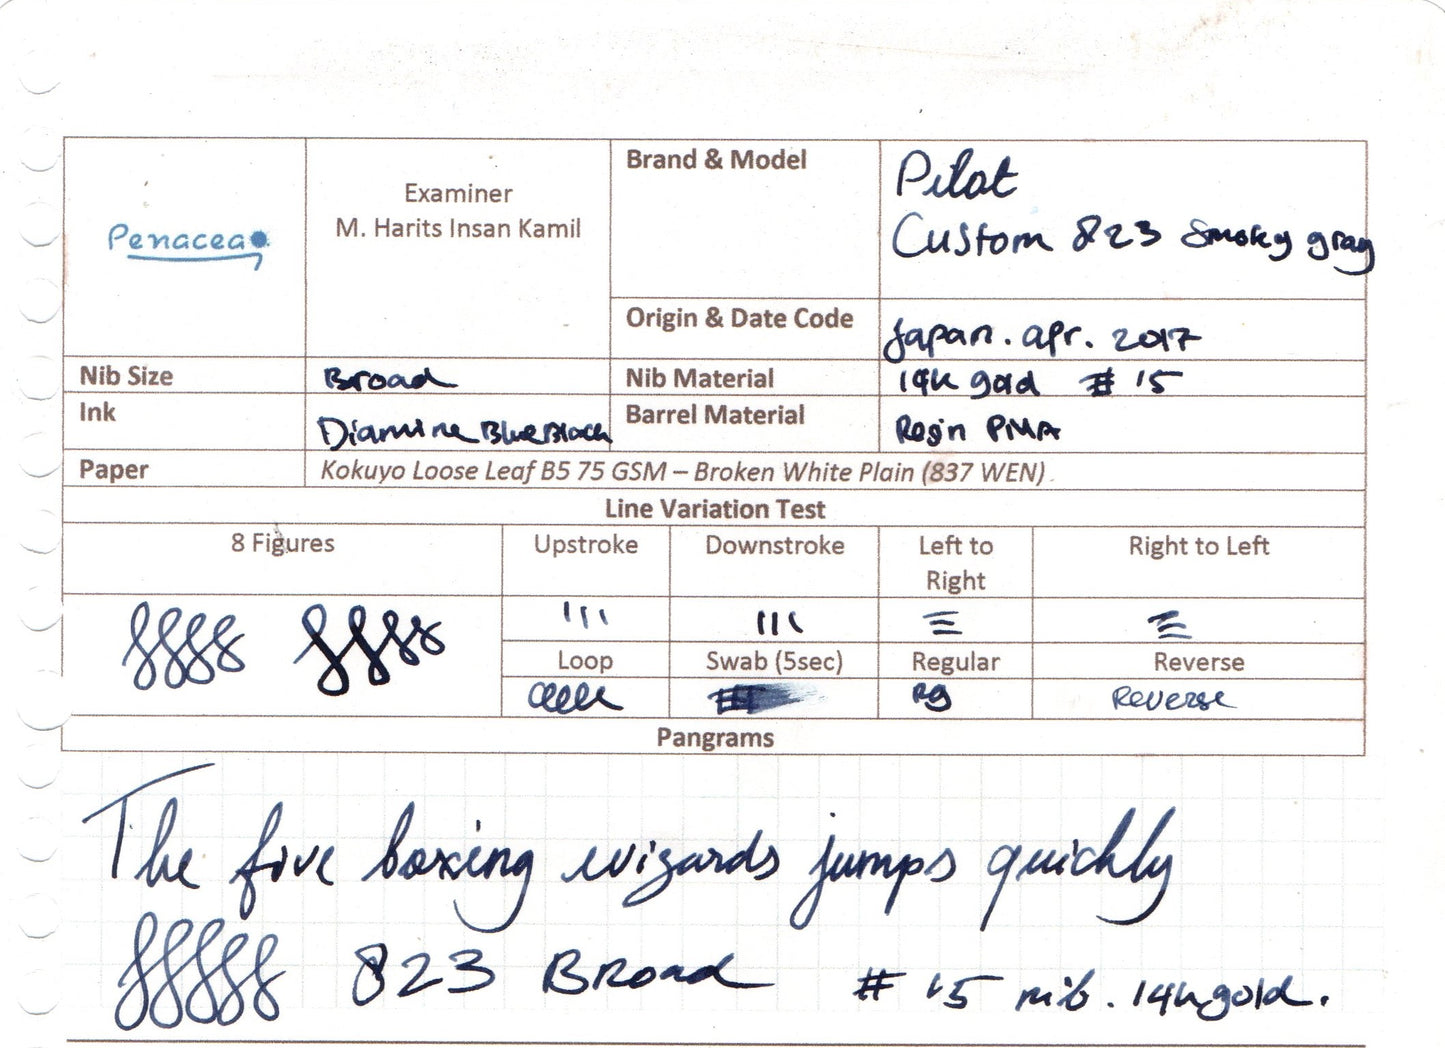 Penacea
Examiner
M. Harits Insan Kamil
Brand & Model
Pilot
Custom 823 Smoky gray
Origin & Date Code
Japan. apr. 2017
Nib Size
Broad
Nib Material
14k gold # 15
Ink
Diamine Blue Black
Barrel Material
Resin PMA
Paper
Kokuyo Loose Leaf B5 75 GSM – Broken White Plain (837 WEN)
Line Variation Test
8 Figures
Upstroke
Downstroke
Left to
Right
Right to Left
Loop
Swab (5sec)
Regular
Reverse
Rg
Reverse
Pangrams
The five boxing wizards jumps quickly
823 Broad # 15 nib. 14k gold.